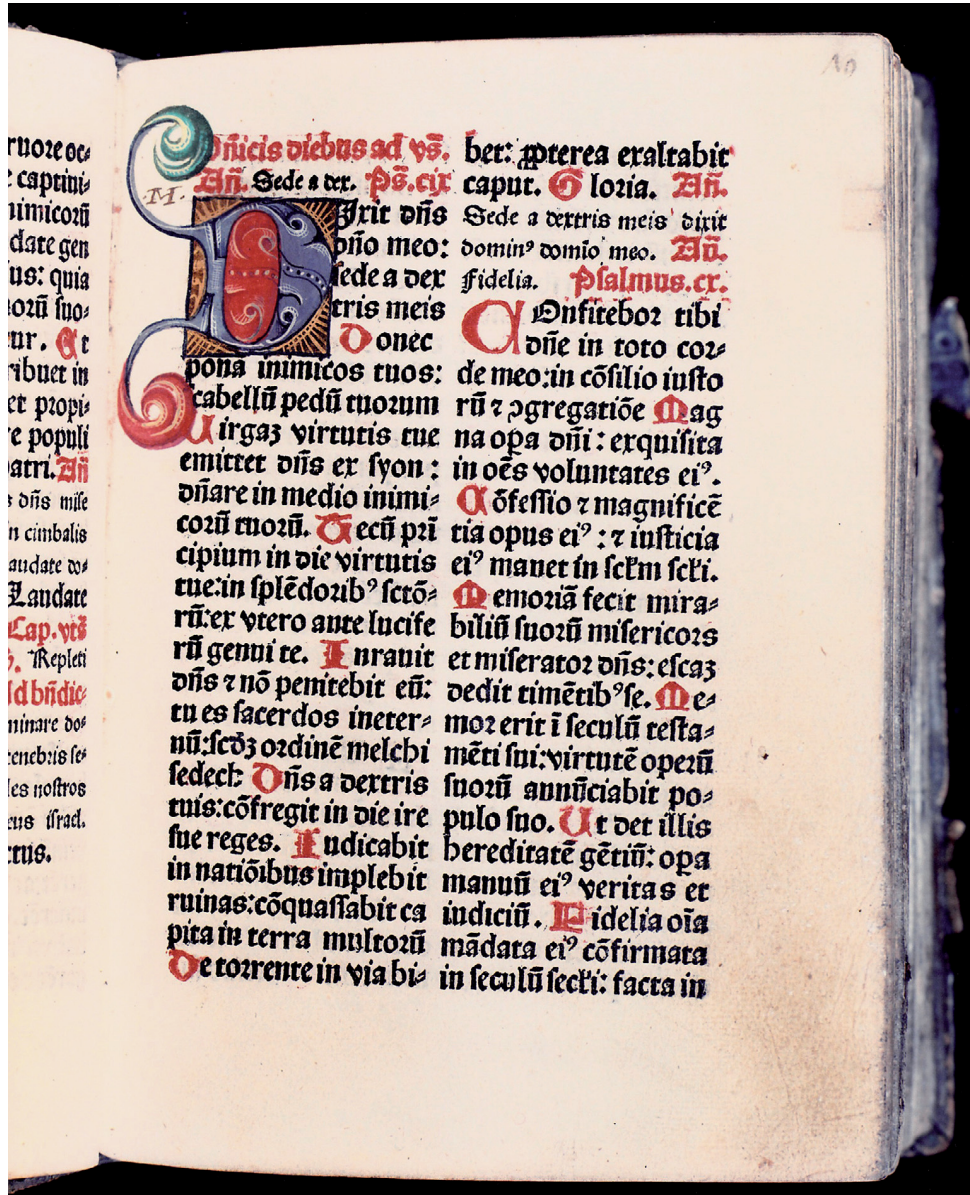 ruore oc⸗
captini⸗
nimicorū
date gen
us: quia
orū suo⸗
ur. Et
ribuet in
et propi⸗
e populi
patri. Añ
s dñs mise
n cimbalis
audate do⸗
Laudate
Cap. vts̄
Repleti
Ad bñdic⸗
minare do⸗
tenebris se⸗
les nostros
eus israel.
ctus.
10
Dñicis diebus ad vs̄.
Añ. Sede a dex. Ps̄. cix
.M.
DIxit dñs
dño meo:
sede a dex
tris meis
Donec
ponā inimicos tuos:
scabellū pedū tuorum
Uirgaꝫ virtutis tue
emittet dñs ex syon:
dñare in medio inimi⸗
corū tuorū. Tecū pri
cipium in die virtutis
tue: in splēdoribꝰ sctō⸗
rū: ex vtero ante lucife
rū genui te. Iurauit
dñs ⁊ nō penitebit eū:
tu es sacerdos ineter⸗
nū: scdꝫ ordinē melchi
sedech: Dñs a dextris
tuis: cōfregit in die ire
sue reges. Iudicabit
in natiōibus implebit
ruinas: cōquassabit ca
pita in terra multorū
De torrente in via bi⸗
bet: ꝓpterea exaltabit
caput. Gloria. Añ.
Sede a dextris meis dixit
dominꝰ domīo meo. Añ.
Fidelia. Psalmus. cx.
COnfitebor tibi
dñe in toto cor⸗
de meo: in cōsilio iusto
rū ⁊ ꝯgregatiōe Mag
na oꝑa dñi: exquisita
in oēs voluntates eiꝰ.
Cōfessio ⁊ magnificē
tia opus eiꝰ: ⁊ iusticia
eiꝰ manet in sclm̄ scli.
Memoriā fecit mira⸗
biliū suorū misericors
et miserator dñs: escaꝫ
dedit timētibꝰ se. Me⸗
mor erit ī seculū testa⸗
mēti sui: virtutē operū
suorū annūciabit po⸗
pulo suo. Ut det illis
hereditatē gētiū: oꝑa
manuū eiꝰ veritas et
iudiciū. Fidelia oīa
mādata eiꝰ cōfirmata
in seculū secli: facta in